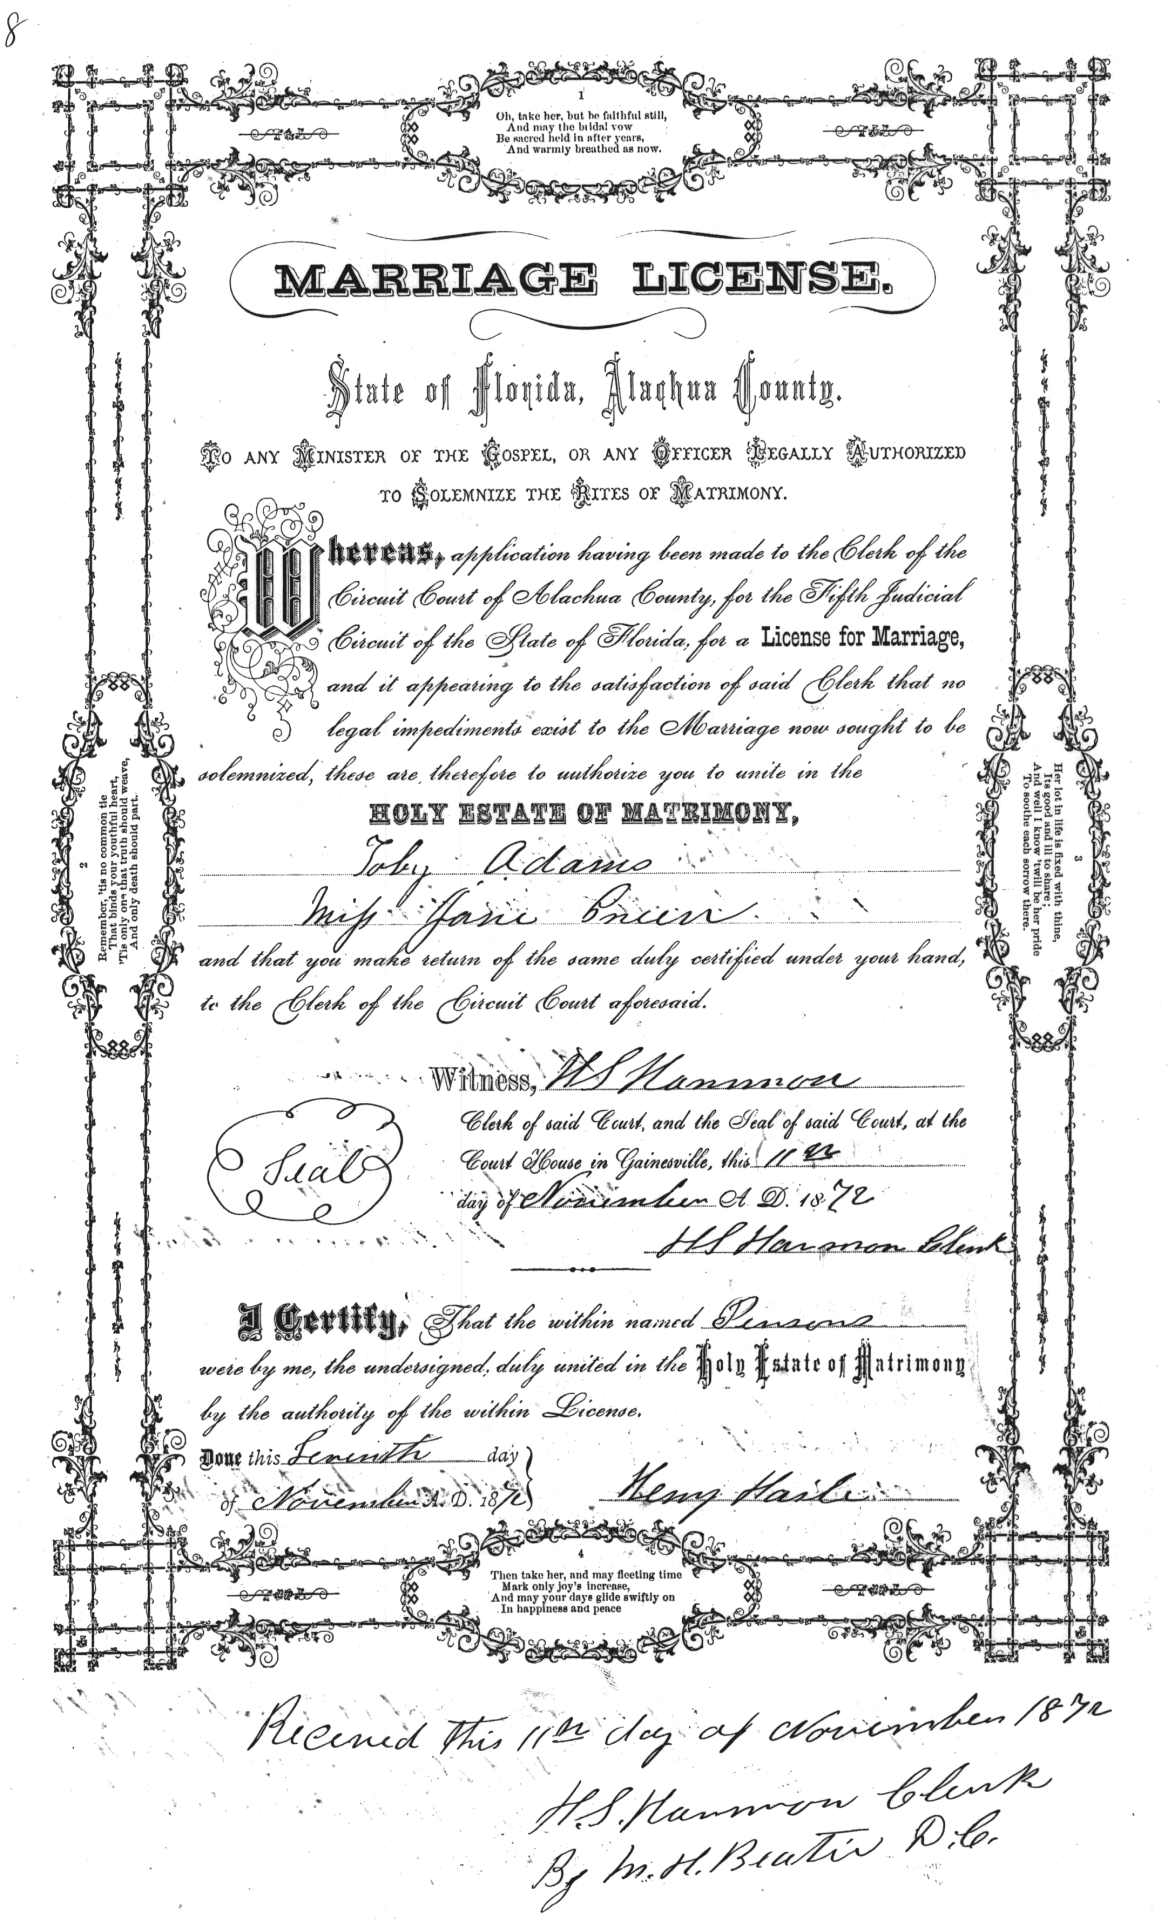 8
1
Oh, take her, but be faithful still,
And may the bridal vow
Be sacred held in after years,
And warmly breathed as now.
MARRIAGE LICENSE.
State of Florida, Alachua County.
TO ANY MINISTER OF THE GOSPEL, OR ANY OFFICER LEGALLY AUTHORIZED
TO SOLEMNIZE THE RITES OF MATRIMONY.
Whereas, application having been made to the Clerk of the
Circuit Court of Alachua County, for the Fifth Judicial
Circuit of the State of Florida, for a License for Marriage,
and it appearing to the satisfaction of said Clerk that no
legal impediments exist to the Marriage now sought to be
solemnized; these are, therefore to authorize you to unite in the
HOLY ESTATE OF MATRIMONY,
Toby Adams
Miss Jane
and that you make return of the same duly certified under your hand,
to the Clerk of the Circuit Court aforesaid.
Witness, H S Harmon
Clerk of said Court, and the Seal of said Court, at the
Court House in Gainesville, this 11th
day of November A. D. 1872
Seal
H S Harmon Clerk
I Certify, That the within named Persons
were by me, the undersigned, duly united in the Holy Estate of Matrimony
by the authority of the within License.
Done this Seventh day
of November A. D. 1872
Henry Haile
2
Remember, 'tis no common tie
That binds your youthful heart,
'Tis only one that truth should weave,
And only death should part.
3
Her lot in life is fixed with thine,
Its good and ill to share;
And well I know 'twill be her pride
To soothe each sorrow there.
4
Then take her, and may fleeting time
Mark only joy's increase,
And may your days glide swiftly on
In happiness and peace
Received this 11th day of November 1872
H. S. Harmon Clerk
By M. H. D. C.